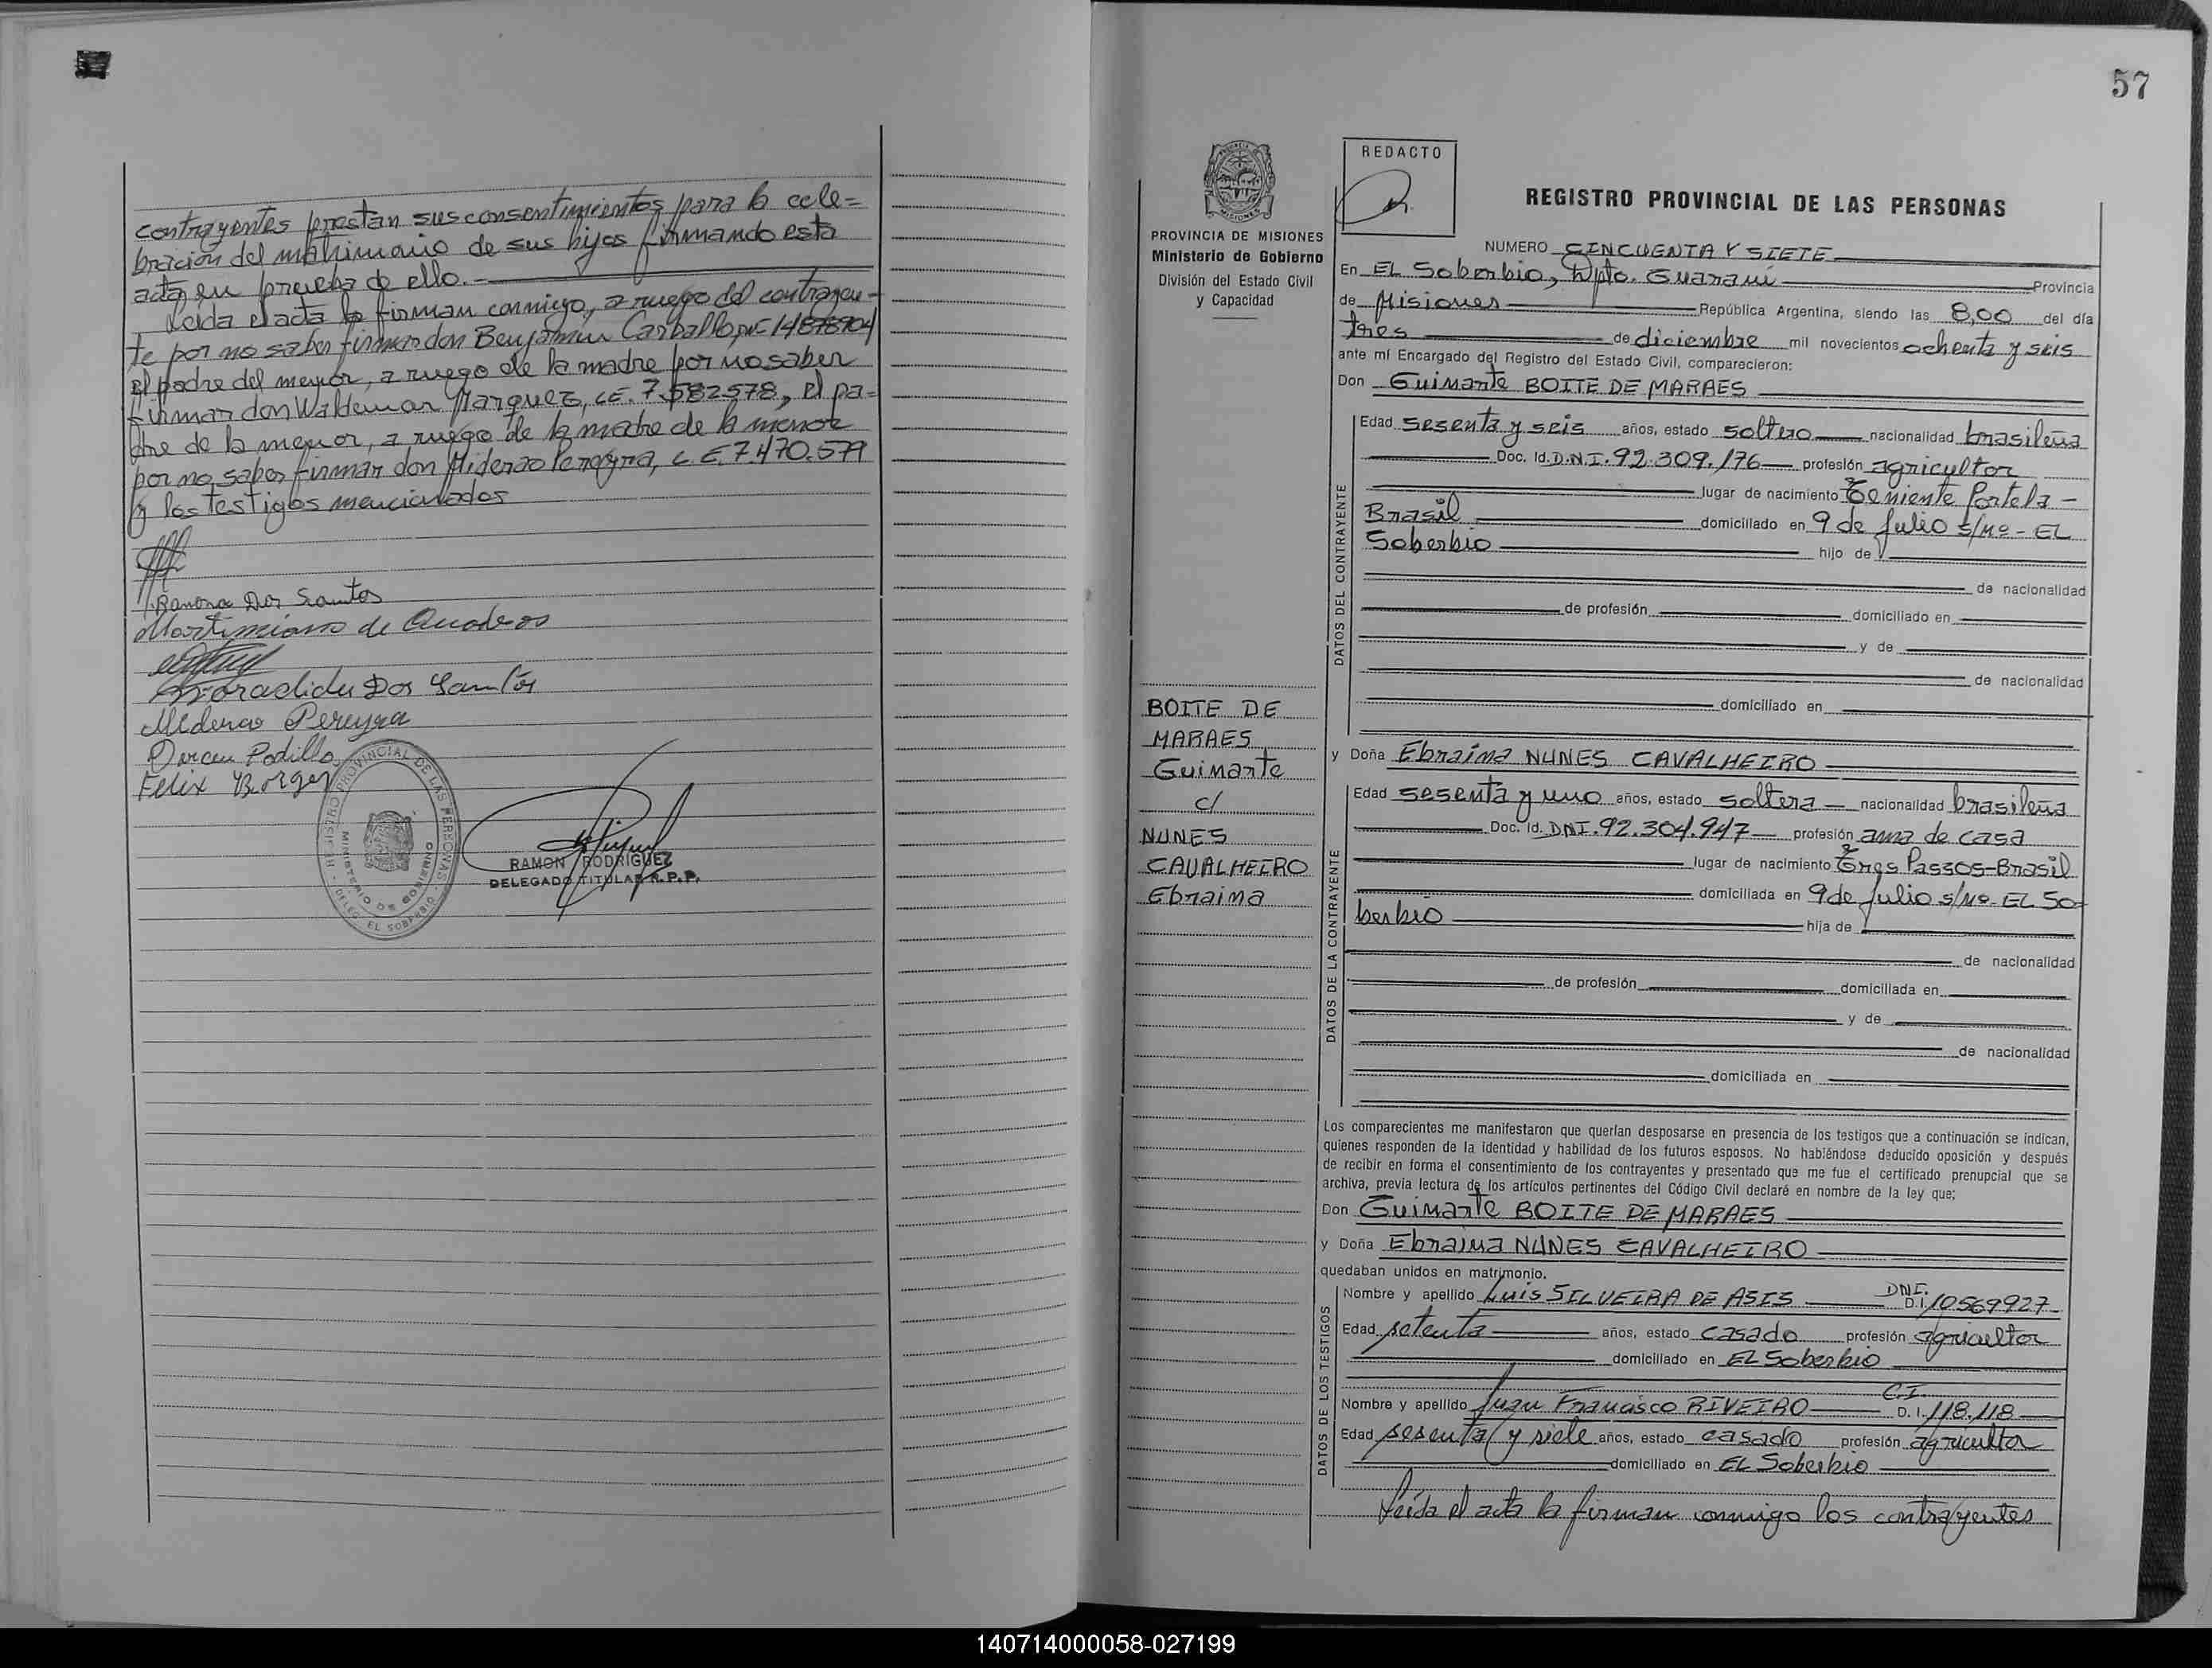 contrayentes prestan sus consentimientos para la cele=
bracion del matrimonio de sus hijos firmando esta
acta en prueba de ello.-
Leida el acta la firman conmigo, a ruego del contrayen-
te por no saber firmar don Benjamin Carballo, DNI 14878904
el padre del menor, a ruego de la madre por no saber
firmar don Waldemar Marquez, C.E. 7.582578, el pa-
dre de la menor, a ruego de la madre de la menor
por no saber firmar don Miderao Pereyra, C.E. 7.470.579
y los testigos mencionados
Ramona Dos Santos
de Quadros
Dos Santos
Miderao Pereyra
Darceu Podillo
Felix Borges
REGISTRO PROVINCIAL DE LAS PERSONAS
MINISTERIO DE GOBIERNO
DELEG. EL SOBERBIO
RAMON RODRIGUEZ
DELEGADO TITULAR R.P.P.
57
PROVINCIA DE MISIONES
Ministerio de Gobierno
División del Estado Civil
y Capacidad
REDACTO
REGISTRO PROVINCIAL DE LAS PERSONAS
NUMERO CINCUENTA Y SIETE
En EL Soberbio, Dpto. Guaraní Provincia
de Misiones República Argentina, siendo las 8,00 del día
tres de diciembre mil novecientos ochenta y seis
ante mí Encargado del Registro del Estado Civil, comparecieron:
Don Guimante BOITE DE MARAES
DATOS DEL CONTRAYENTE
Edad sesenta y seis años, estado soltero nacionalidad brasileña
Doc. Id. D.N.I. 92.309.176 profesión agricultor
lugar de nacimiento Teniente Portela -
Brasil domiciliado en 9 de Julio s/Nº - EL
Soberbio hijo de
de nacionalidad
de profesión domiciliado en
y de
de nacionalidad
domiciliado en
BOITE DE
MARAES
Guimante
c/
NUNES
CAVALHEIRO
Ebraima
y Doña Ebraima NUNES CAVALHEIRO
DATOS DE LA CONTRAYENTE
Edad sesenta y uno años, estado soltera - nacionalidad brasileña
Doc. Id. DNI. 92.304.947 profesión ama de casa
lugar de nacimiento Tres Passos-Brasil
domiciliada en 9 de Julio s/Nº- EL So-
berbio hija de
de nacionalidad
de profesión domiciliada en
y de
de nacionalidad
domiciliada en
Los comparecientes me manifestaron que querían desposarse en presencia de los testigos que a continuación se indican,
quienes responden de la identidad y habilidad de los futuros esposos. No habiéndose deducido oposición y después
de recibir en forma el consentimiento de los contrayentes y presentado que me fue el certificado prenupcial que se
archiva, previa lectura de los artículos pertinentes del Código Civil declaré en nombre de la ley que;
Don Guimante BOITE DE MARAES
y Doña Ebraima NUNES CAVALHEIRO
quedaban unidos en matrimonio.
DATOS DE LOS TESTIGOS
Nombre y apellido Luis SILVEIRA DE ASIS DNI. D.I. 10569927
Edad setenta años, estado casado profesión agricultor
domiciliado en EL Soberbio
Nombre y apellido Juan Francisco RIVEIRO C.I. D.I. 118.118
Edad sesenta y siete años, estado casado profesión agricultor
domiciliado en EL Soberbio
Leída el acta la firman conmigo los contrayentes
140714000058-027199